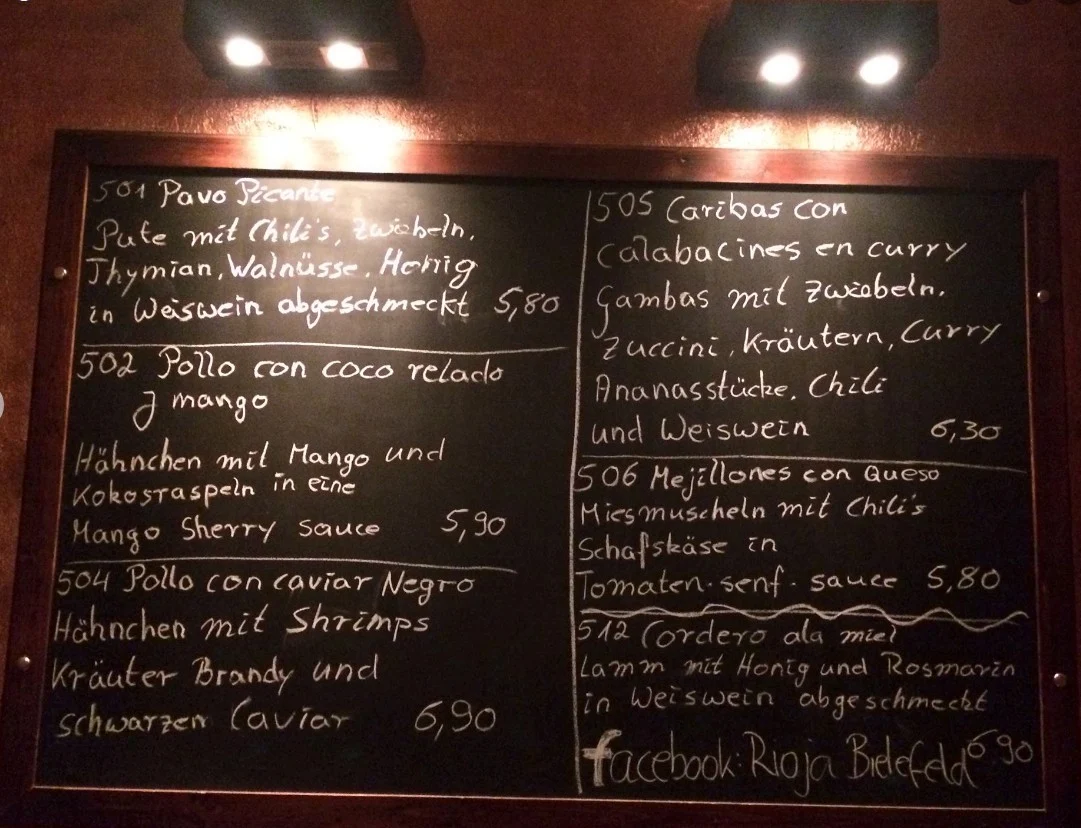 501 Pavo Picante
Pute mit Chili's, Zwiebeln,
Thymian, Walnüsse, Honig
in Weiswein abgeschmeckt 5,80
502 Pollo con coco relado
y mango
Hähnchen mit Mango und
Kokosraspeln in eine
Mango Sherry sauce 5,90
504 Pollo con caviar Negro
Hähnchen mit Shrimps
Kräuter Brandy und
schwarzen Caviar 6,90
505 Caribas con
calabacines en curry
Gambas mit Zwiebeln,
Zuccini, Kräutern, Curry
Ananasstücke, Chili
und Weiswein 6,30
506 Mejillones con Queso
Miesmuscheln mit Chili's
Schafskäse in
Tomaten-senf-sauce 5,80
512 Cordero ala miel
Lamm mit Honig und Rosmarin
in Weiswein abgeschmeckt
6,90
facebook: Rioja Bielefeld